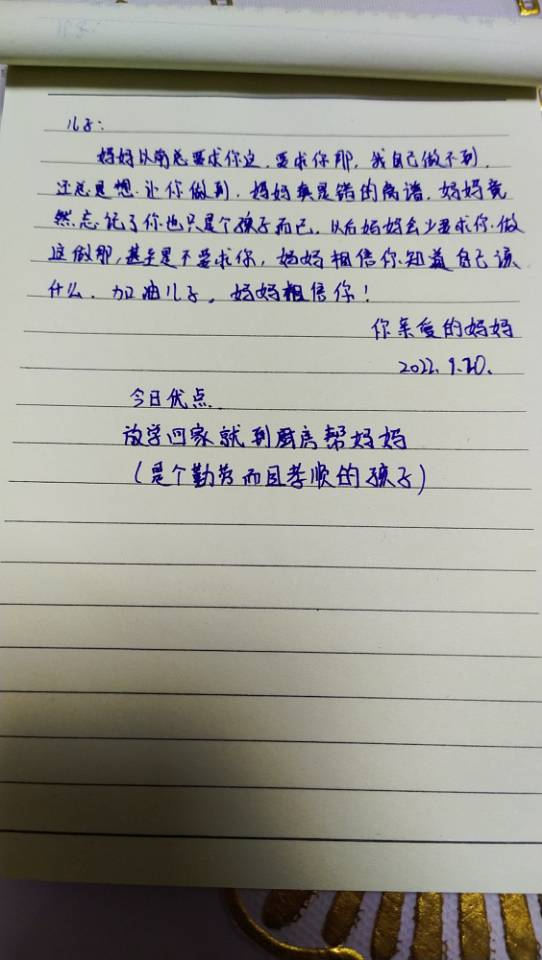 儿子：
妈妈以前总要求你这，要求你那，我自己做不到，
还总是想让你做到，妈妈真是错的离谱，妈妈竟
然忘记了你也只是个孩子而已，以后妈妈会少要求你做
这做那，甚至是不要求你，妈妈相信你知道自己该
什么，加油儿子，妈妈相信你！
你亲爱的妈妈
2022.9.20.
今日优点
放学回家就到厨房帮妈妈
（是个勤劳而且孝顺的孩子）